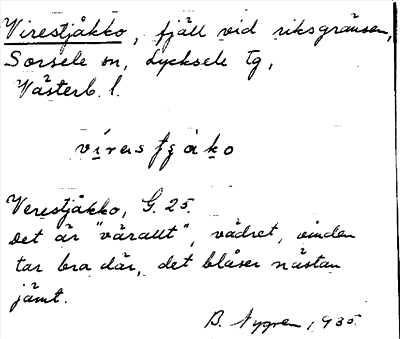 Virestjåkko, fjäll vid riksgränsen,
Sorsele sn, Lycksele tg,
Västerb. l.
Verestjåkko, G. 25.
Det är "värallt", vädret, vinden
tar bra där, det blåser nästan
jämt.
B. Nygren, 1935.